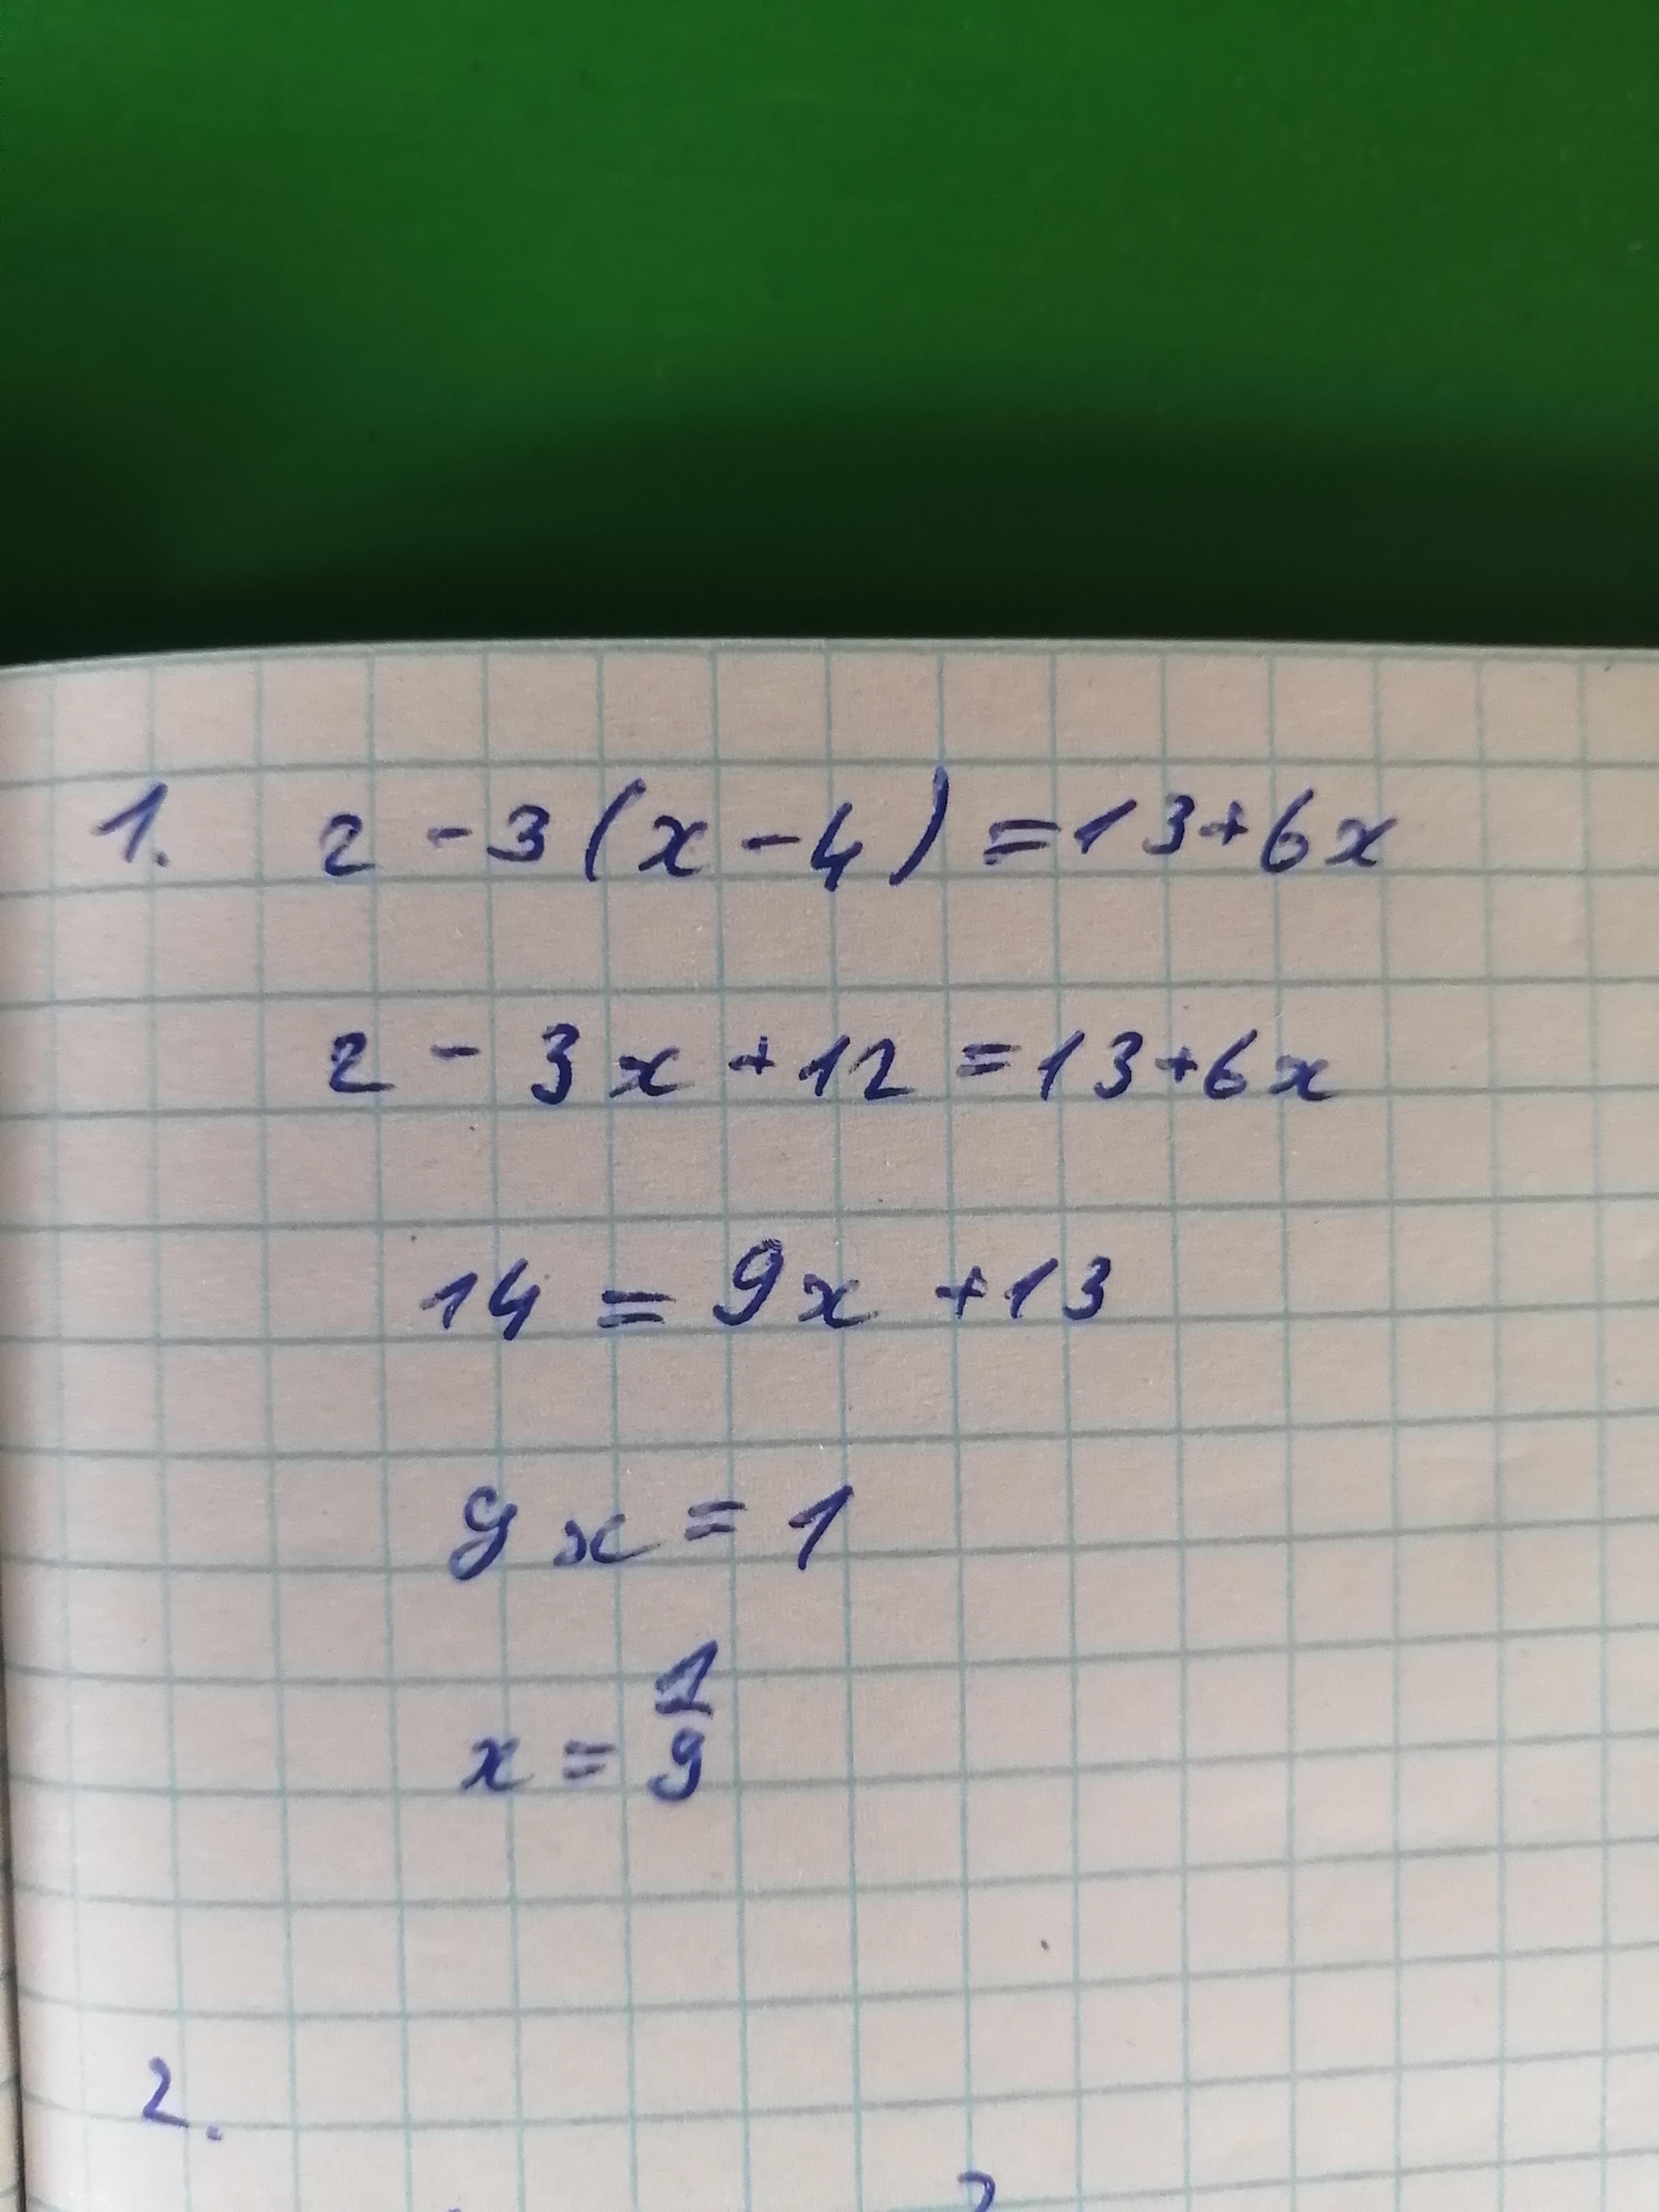 1. 2 - 3(x - 4) = 13 + 6x
2 - 3x + 12 = 13 + 6x
14 = 9x + 13
9x = 1
x = 1/9
2.